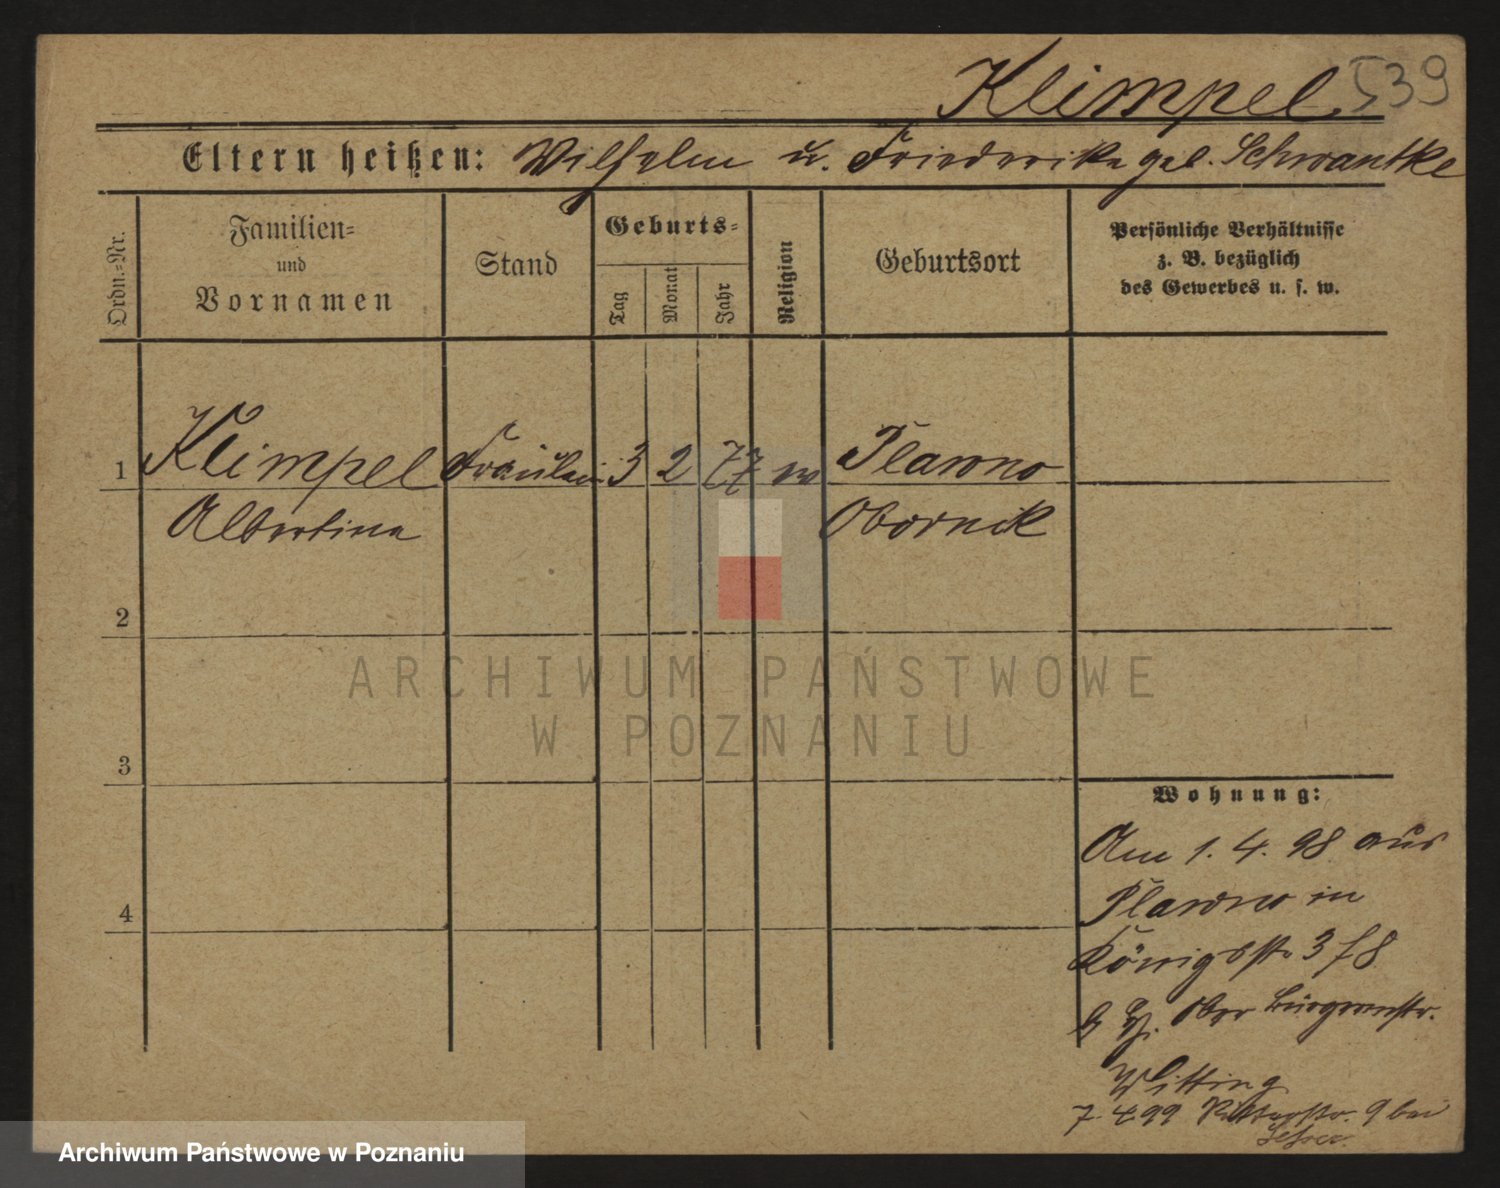 Klimpel 539
Eltern heißen: Wilhelm u. Friederike geb. Schwantke
Ordn.-Nr.
Familien-
und
Vornamen
Stand
Geburts-
Tag
Monat
Jahr
Religion
Geburtsort
Persönliche Verhältnisse
z. B. bezüglich
des Gewerbes u. s. w.
1 Klimpel Fräulein 3 2 77 Plawno
Albertina Obornik
2
3
4
Wohnung:
Am 1. 4. 98 aus
Plawno in
Königsstr 3 f 8
Ober Bürgermstr.
Witting
7. 4 99 Ritterstr. 9 bei
ARCHIWUM PAŃSTWOWE
W POZNANIU
Archiwum Państwowe w Poznaniu